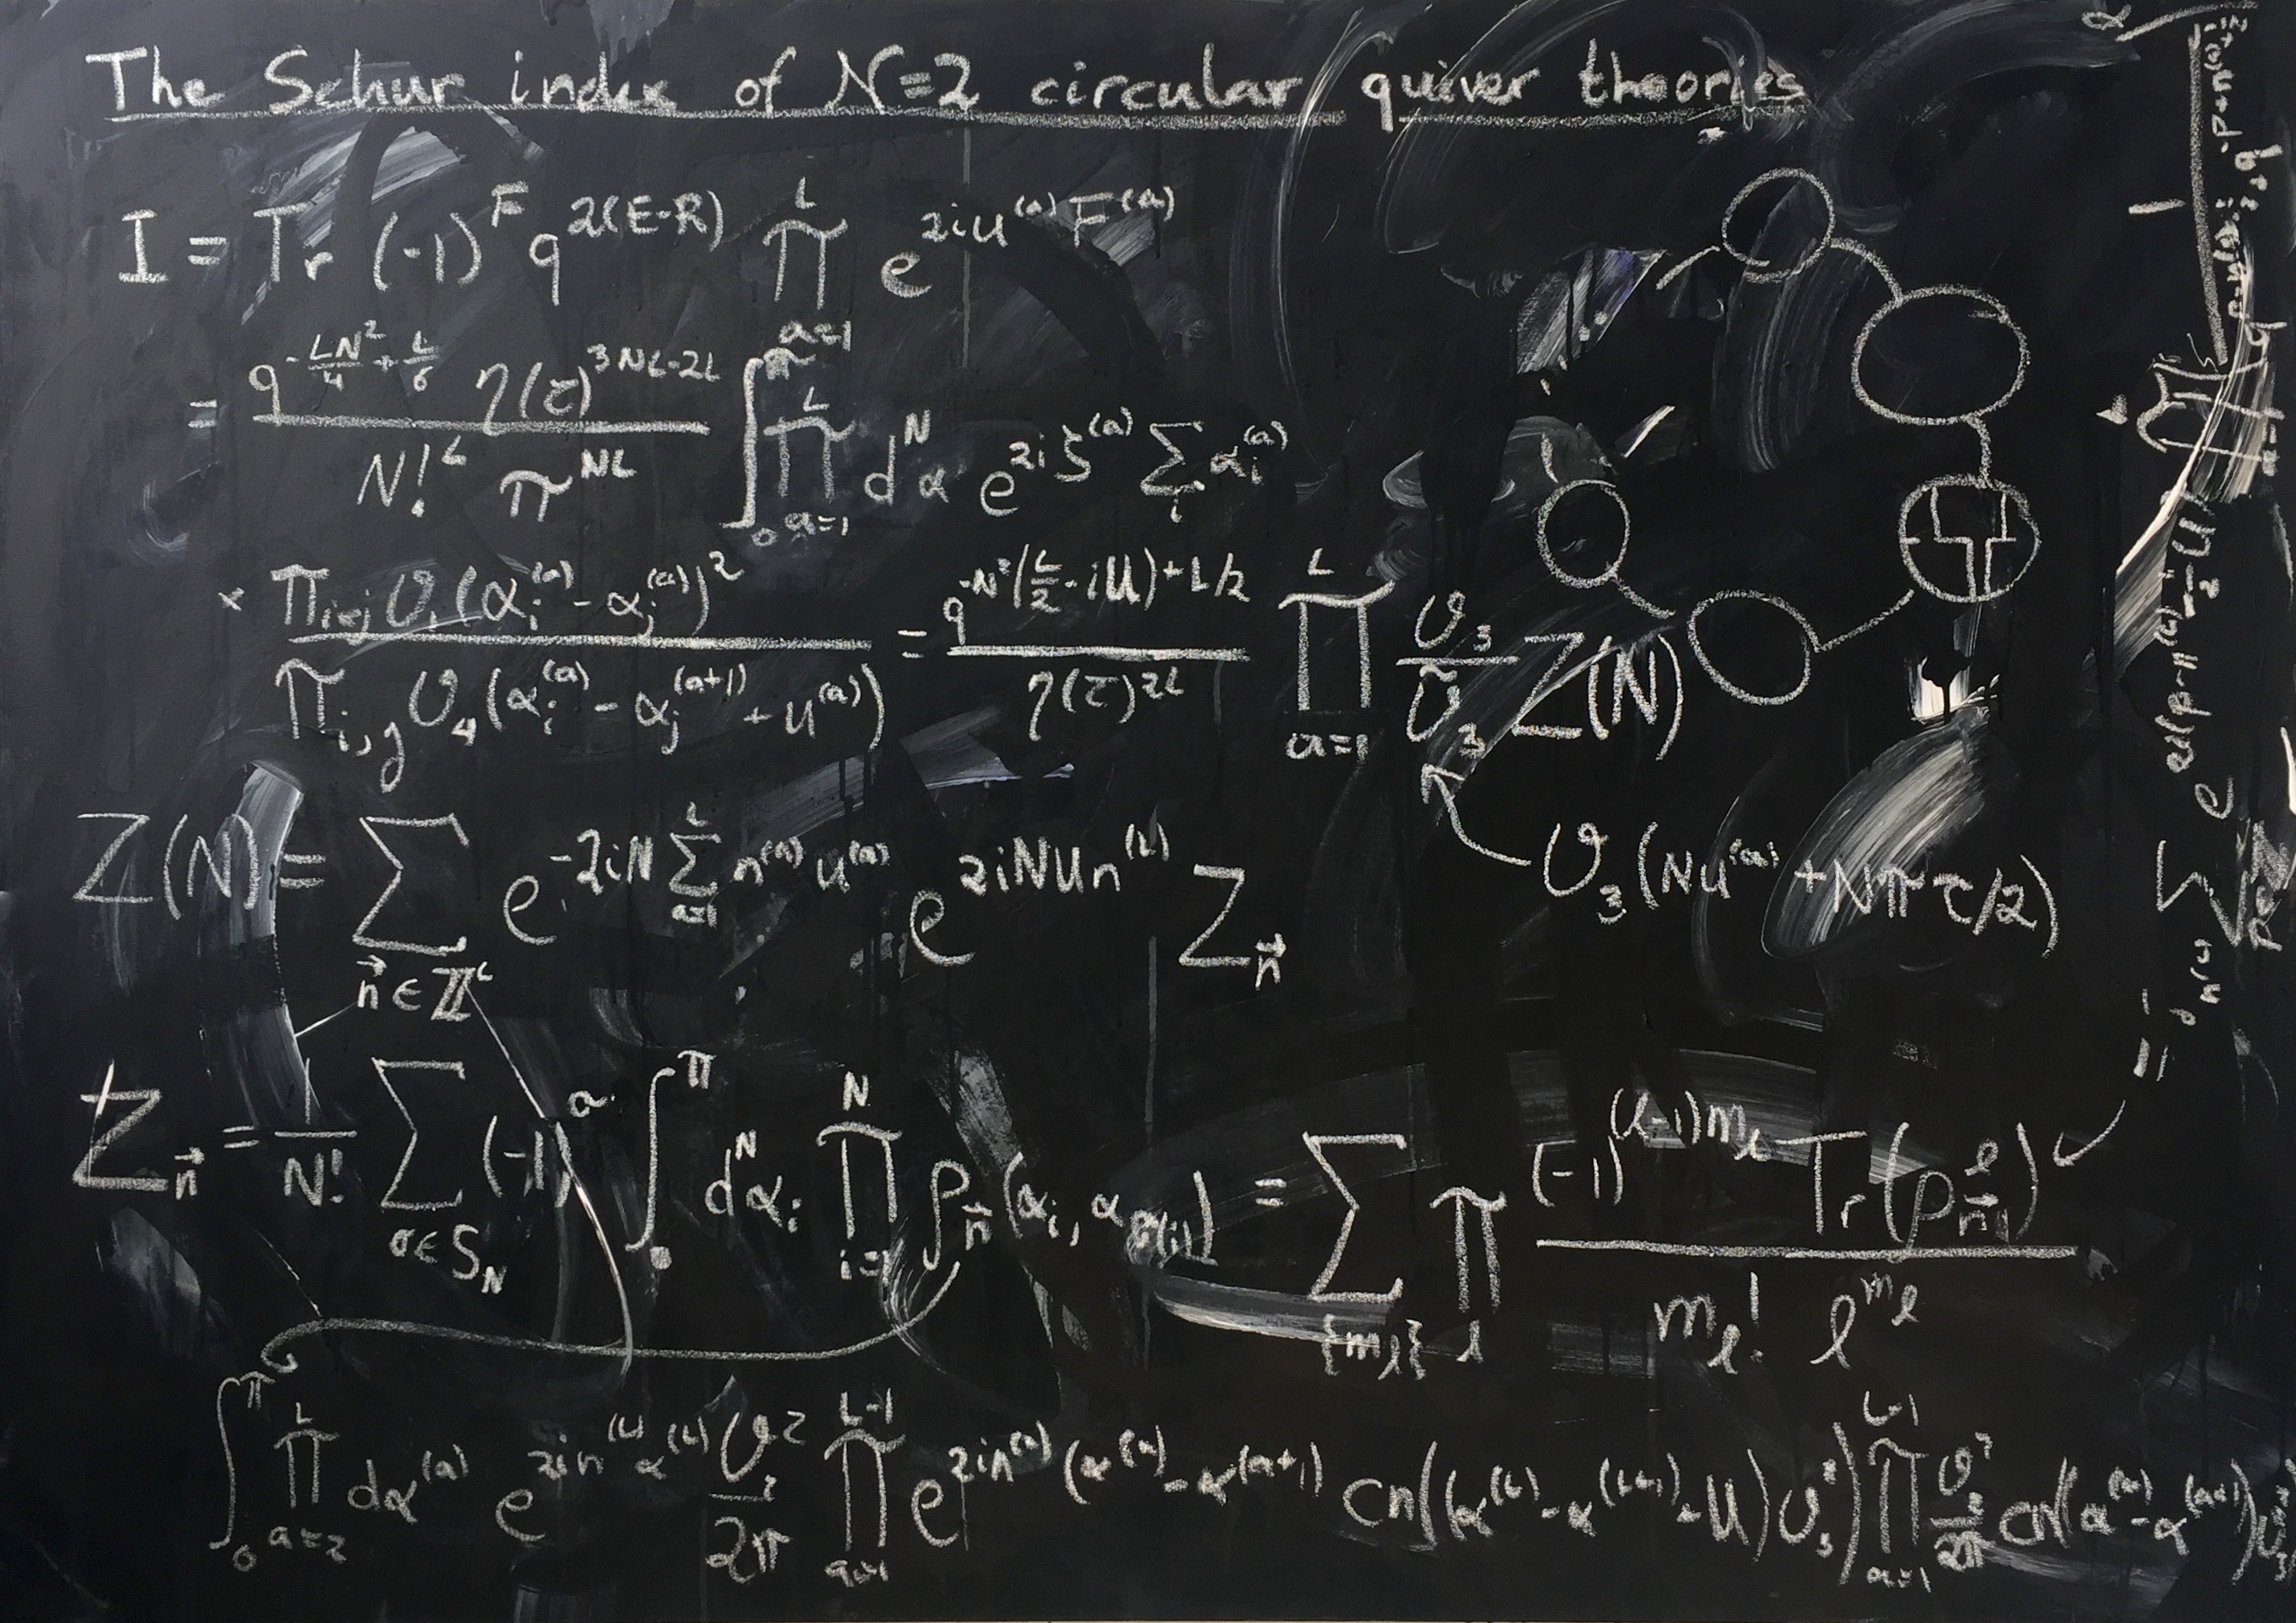 The Schur index of N=2 circular quiver theories
I = Tr (-1)^F q^{2(E-R)} ∏_{a=1}^{L} e^{2iu^{(a)} F^{(a)}}
= \frac{q^{-\frac{LN^2}{4}+\frac{L}{6}} η(τ)^{3NL-2L}}{N!^L π^{NL}} ∫_0^π ∏_{a=1}^{L} d^N α e^{2iζ^{(a)} ∑_i α_i^{(a)}}
× \frac{∏_{i<j} ϑ_1(α_i^{(a)} - α_j^{(a)})^2}{∏_{i,j} ϑ_4(α_i^{(a)} - α_j^{(a+1)} + u^{(a)})} = \frac{q^{-N^2(\frac{L}{2}-iU)+L/2}}{η(τ)^{2L}} ∏_{a=1}^{L} \frac{ϑ_3}{ϑ̃_3} Z(N)
ϑ_3(Nu^{(a)} + Nπτ/2)
Z(N) = ∑_{\vec{n}∈ℤ^L} e^{-2iN ∑_{a=1}^{L} n^{(a)} u^{(a)}} e^{2iNUn^{(L)}} Z_{\vec{n}}
Z_{\vec{n}} = \frac{1}{N!} ∑_{σ∈S_N} (-1)^σ ∫_0^π d^N α_i ∏_{i=1}^{N} ρ_{\vec{n}}(α_i, α_{σ(i)}) = ∑_{\{m_ℓ\}} ∏_ℓ \frac{(-1)^{(ℓ-1)m_ℓ} Tr(ρ_{\vec{n}}^ℓ)}{m_ℓ! ℓ^{m_ℓ}}
∫_0^π ∏_{a=2}^{L} dα^{(a)} e^{2in^{(L)} α^{(L)}} \frac{ϑ_2^2}{2π} ∏_{a=1}^{L-1} e^{2in^{(a)} (α^{(a)} - α^{(a+1)})} cn((α^{(L)} - α^{(L+1)} - U)ϑ_3^2) ∏_{a=1}^{L-1} \frac{ϑ_2^2}{2π} cn((α^{(a)} - α^{(a+1)})ϑ_3^2)